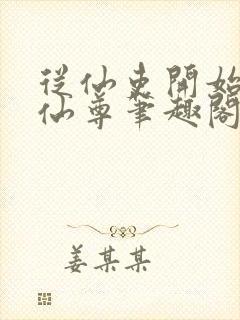 從仙吏開始
仙尊筆趣閣
姜某某